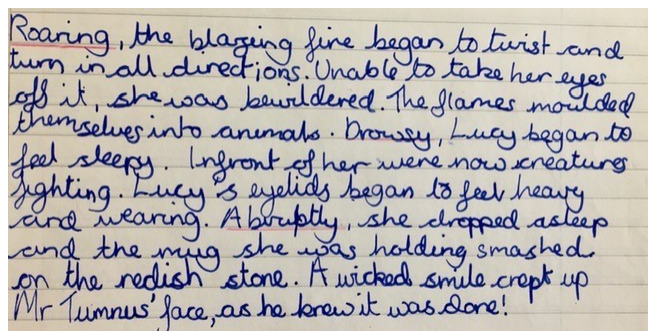 Roaring, the blazeing fire began to twist and
turn in all directions. Unable to take her eyes
off it, she was bewildered. The flames moulded
themselves into animals. Drowsy, Lucy began to
feel sleepy. Infront of her were now creatures
fighting. Lucy's eyelids began to feel heavy
and wearing. Abruptly, she dropped asleep
and the mug she was holding smashed
on the redish stone. A wicked smile crept up
Mr Tumnus' face, as he knew it was done!